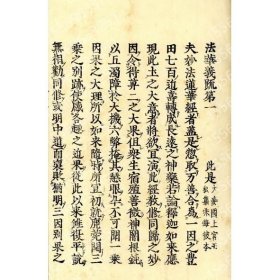 法華義疏第一
此是
大委國上宮王
私集非海彼本
夫妙法蓮華經者蓋是惣取万善合為一因之豊
田七百近壽轉成長遠之神藥若論釋迦如來應
現此土之大意者將欲宜演此經教修同歸之妙
因令得莫二之大果但衆生宿殖善微神闇根鈍
以五濁鄣於大機六弊掩其慧眼卒不可聞一乘
因果之大理所以如來隨時所宜初就鹿苑開三
乘之別疏使感各趣之近果從此以來雖復平說
無相勸同修或明中道而褒貶猶明三因別果之